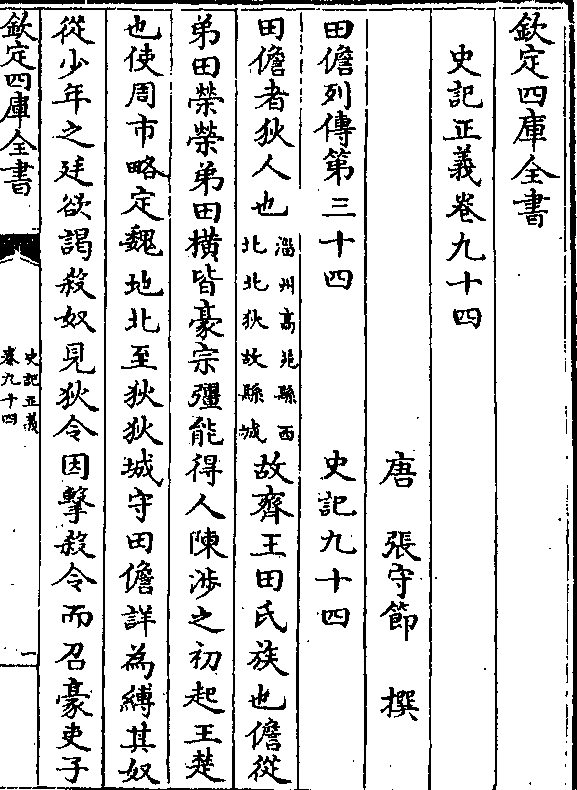 欽定四庫全書
史記正義卷九十四
唐 張守節 撰
田儋列傳第三十四 史記九十四
田儋者狄人也
淄州高苑縣西
北北狄故縣城
故齊王田氏族也儋從
弟田榮榮弟田橫皆豪宗彊能得人陳涉之初起王楚
也使周巿略定魏地北至狄狄城守田儋詳為縛其奴
從少年之廷欲謁殺奴見狄令因擊殺令而召豪吏子
欽定四庫全書
史記正義
卷九十四
一